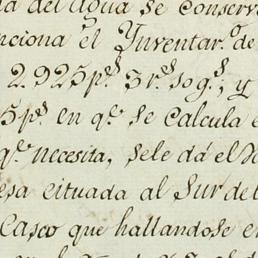 del Agua se conserv
nciona el Ynventar.º de
2.925 p.s 3 r.s 10 g.s; y
5 p.s en q.e se calcula e
q.e necesita, sele dá el
esa cituada al Sur del
Casco que hallandose en